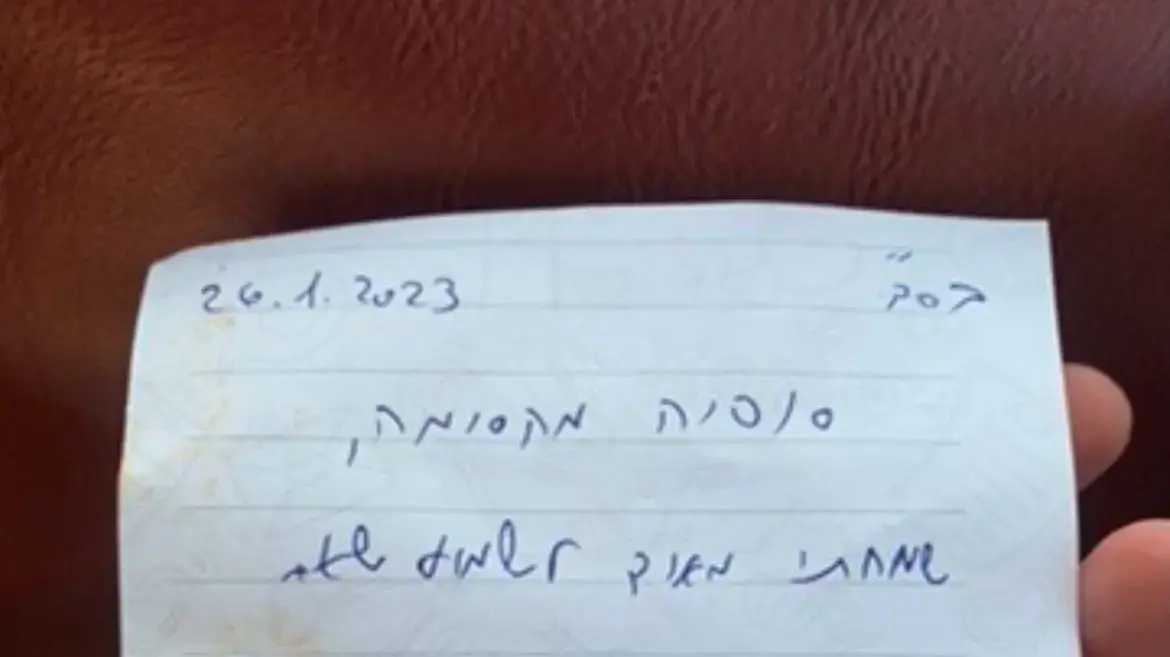 בס"ד
26.1.2023
סופיה מקסימה,
שמחתי מאוד לשמוע שאת